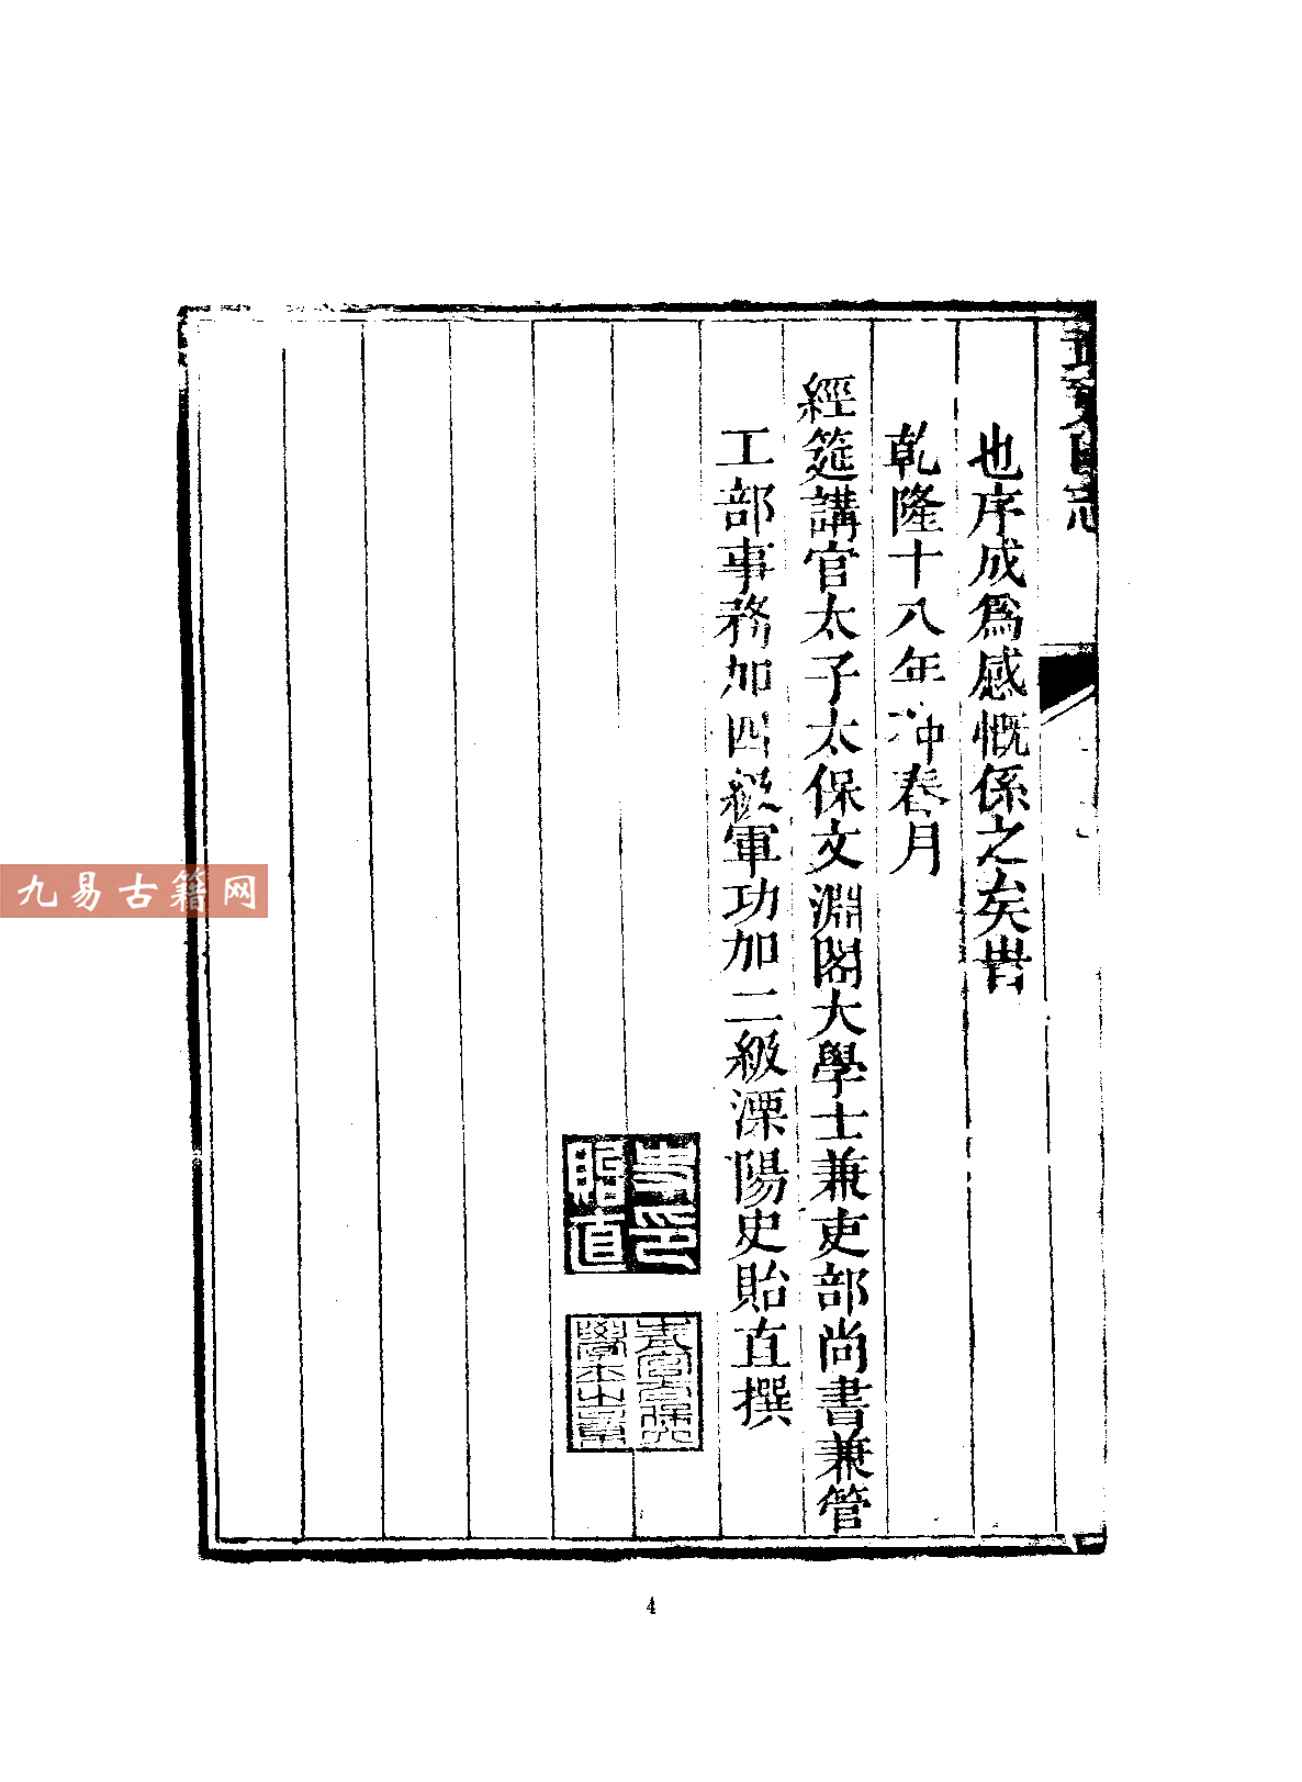 也序成爲感慨係之矣旹
乾隆十八年仲春月
經筵講官太子太保文淵閣大學士兼吏部尚書兼管
工部事務加四級軍功加二級溧陽史貽直撰
史印
貽直
學士之章
九易古籍网
4